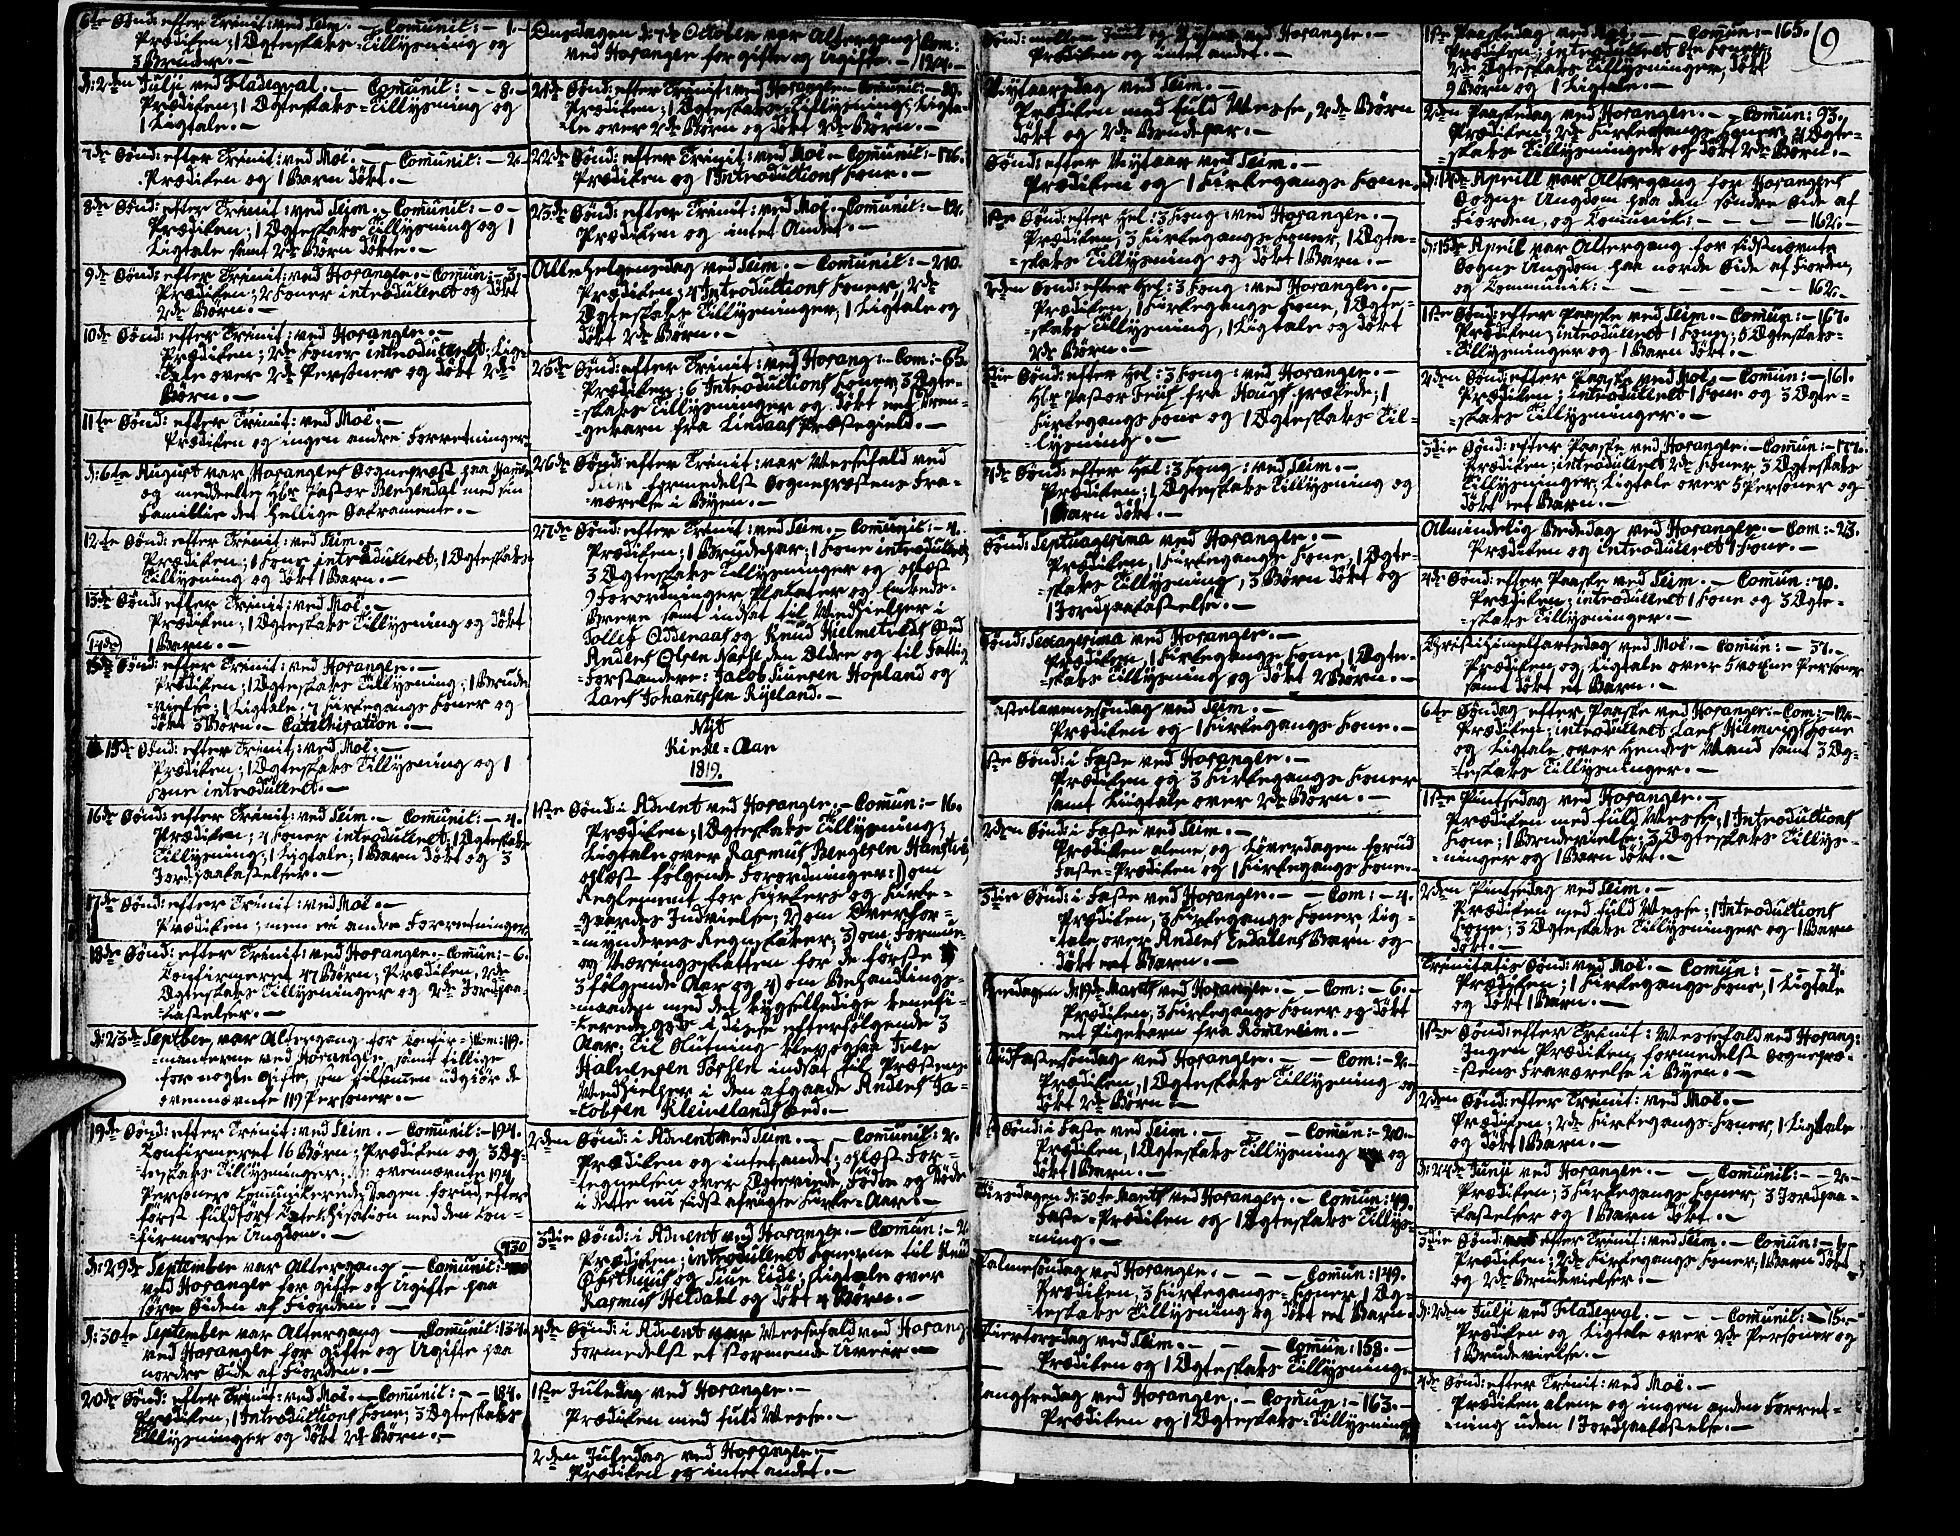 6te Sønd: efter Trinit: ved Seim. – Comunic: – 1. –
Prædiken; 1 Ægteskabs-Tillysning og
3 Bruder. –
D: 2den Julji ved Fladeqval. – Comunic: – – 8. –
Prædiken; 1 Ægteskabs-Tillysning og
1 Ligtale. –
7de Sønd: efter Trinit: ved Moë. – Comunic: – 2. –
Prædiken og 1 Barn döbt. –
8de Sønd: efter Trinit: ved Seim. – Comunic: – 0 –
Prædiken; 1 Ægteskabs Tillysning og 1
Ligtale samt 2de Børn döbte. –
9de Sønd: efter Trinit: ved Hosangr. – Comun: – 3. –
Prædiken; 2 Koner introducert og döbt
2de Børn. –
10de Sønd: efter Trinit: ved Hosangr. –
Prædiken; 2de Koner introduceret; Lig-
-tale over 2de Personer og döbt 2de
Börn. –
11te Sønd: efter Trinit: ved Moë. –
Prædiken og ingen andre Forretninger
D: 6te August var Hosangers Sognepræst paa Hammer
og meddelte Hr. Pastor Bergendal med sin
Familie det hellige Sacramente. –
12te Sønd: efter Trinit: ved Seim. –
Prædiken; 1 Kone introduceret; 1 Ægteskabs
Tillysning og döbt 1 Barn. –
13de Sønd: efter Trinit: ved Moë. –
Prædiken; 1 Ægteskabs Tillysning og döbt
1 Barn. –
14de Sønd: efter Trinit: ved Hosangr. –
Prædiken; 1 Ægteskabs Tillysning; 1 Brude-
-vielse; 1 Ligtale; 7 Kirkegangs Koner og
döbt 3 Börn. – Catechisation. –
15de Sønd: efter Trinit: ved Moë. –
Prædiken; 1 Ægteskabs Tillysning og 1
Kone introduceret. –
16de Sønd: efter Trinit: ved Seim. – Comunic: – 4.
Prædiken; 4 Koner introduceret; 1 Ægteskabs
Tillysning; 1 Ligtale; 1 Barn döbt og 3
Jordpaakastelser. –
17de Sønd: efter Trinit: ved Moë. –
Prædiken; men ei andre Forretninger
18de Sønd: efter Trinit: ved Hosangr. – Comun: – 6.
Confirmeret 47 Børn; Prædiken, 2de
Ægteskabs Tillysninger og 2de Jordpaa-
-kastelser. –
D: 23de Septber var Altergang for Confir- Com: 119.
-manterne ved Hosangr, samt tillige
for nogle Gifte, som tilsamen udgiör de
ovennævnte 119 Personer. –
19de Sønd: efter Trinit: ved Seim. – Comunic: – 194.
Confirmeret 16 Børn; Prædiken og 3 Æg-
-teskabs Tillysninger; de ovennævnte 194
Personer kommunicerede Dagen forud, efter
først fuldført Catechisation med den Con-
-firmerte Ungdom. –
D: 29de September var Altergang – Comunic: 430
ved Hosangr for gifte og Ugifte paa
søre Siden af Fiorden. –
D: 30te September var Altergang – Comunic: 134.
ved Hosangr for gifte og Ugifte paa
nordre Side af Fiorden. –
20de Sønd: efter Trinit: ved Moë. – Comunic: – – 184.
Prædiken, 1 Introductions Kone; 3 Ægteskabs
Tillysninger og döbt 2de Børn. –
Onsdagen d: 7de October var Altergang Com:
ved Hosangr for gifte og Ugifte. – 124. –
21de Sønd: efter Trinit: ved Hosangr – Comunic: – 89.
Prædiken; 1 Ægteskabs Tillysning; Ligta-
-le over 2de Børn og döbt 2de Børn. –
22de Sønd: efter Trinit: ved Moë – Comunic: – 176.
Prædiken og 1 Introductions Kone. –
23de Sønd: efter Trinit: ved Moë. – Comunic: – 12.
Prædiken og intet Andet. –
Allehelgensdag ved Seim. – Comunic: – 210.
Prædiken; 4 Introductions Koner, 2de
Ægteskabs Tillysninger, 1 Ligtale og
döbt 2de Børn. –
25de Sønd: efter Trinit: ved Hosang: – Com: – 65.
Prædiken; 6 Introductions Koner; 3 Ægte-
-skabs Tillysninger og döbt et Dren-
-gebarn fra Lindaas Præstegield. –
26de Sønd: efter Trinit: var Messefald ved
Seim formedelst Sognepræstens Fra-
-værelse i Byen. –
27de Sønd: efter Trinit: ved Seim. – Comunic: – 4.
Prædiken; 1 Brudepar; 1 Kone introduceret,
3 Ægteskabs Tillysninger og oplæst
9 Forordninger Plakater og Embeds-
Breve samt indsat til Medhielper i
Tollef Oddenaas og Knud Hielmetvids Sted
Anders Olsen Næsse den Ældre og til Fattig
Forstandere: Jacob Siursen Hopland og
Lars Johannesen Rÿeland. –
Nÿt
Kirke-Aar
1819.
1ste Sønd: i Advent ved Hosangr. – Comun: – 16.
Prædiken; 1 Ægteskabs Tillysning;
Ligtale over Rasmus Bengtsen
oplæst følgende Forordninger: 1) om
Reglement for Kirkers og Kirke-
-gaardes Indvielse; 2) om Overfor-
-mynderes Regnskaber; 3) om Formue-
og Næringsskatten for de første
3 følgende Aar og 4) om Behandlings-
-maaden med det bygselledige benefi-
-cerede Gods i disse efterfølgende 3
Aar. Til Slutning blev ogsaa Iver
Halversen indsat til Præstens
Medhielper i den afgaaede Anders Ja-
-cobsen Kleivelands Sted. –
2den Sønd: i Advent ved Seim. – Comunic: 2. –
Prædiken og intet andet; oplæst For-
-tegnelsen over Ægteviede, Fødde og Døde
i dette nu sidst afvigte Kirke-Aar. –
3die Sønd: i Advent ved Hosangr. – Comun: – 2.
Prædiken; introduceret Konerne til Knud
og Siur Eide; Ligtale over
Rasmus Heldahl og döbt 4 Børn. –
4de Sønd: i Advent var Messefald ved Hosang.
Formedelst et stormende Uveir. –
1ste Juledag ved Hosanger. –
Prædiken med fuld Messe. –
2den Juledag ved Hosangr. –
Prædiken og intet andet. –
Sønd: mellem Juul og Nytaar ved Hosangr. –
Prædiken og intet andet. –
Nytaarsdag ved Seim. –
Prædiken med fuld Messe, 2de Børn
döbt og 2de Brudepar. –
Sønd: efter Nytaar ved Seim. –
Prædiken og 1 Kirkegangs Kone.
1ste Sønd: efter Hel: 3 Kong: ved Hosangr. –
Prædiken, 3 Kirkegangs Koner, 1 Ægte-
-skabs Tillysning og döbt 1 Barn. –
2den Sønd: efter Hel: 3 Kong: ved Hosangr. –
Prædiken, 1 Kirkegangs Kone, 1 Ægte-
-skabs Tillysning, 1 Ligtale og döbt
2de Børn. –
3die Sønd: efter Hel: 3 Kong: ved Hosangr. –
Hr. Pastor Friis fra Haugs prækede; 1
Kirkegangs Kone og 1 Ægteskabs Til-
-lysning. –
4de Sønd: efter Hel: 3 Kong: ved Seim. –
Prædiken; 1 Ægteskabs Tillysning og
1 Barn döbt. –
Sønd: Septuagesima ved Hosangr. –
Prædiken, 1 Kirkegangs Kone, 1 Ægte-
-skabs Tillysning, 3 Børn döbt og
1 Jordpaakastelse. –
Sønd: Sexagesima ved Hosangr. –
Prædiken, 1 Kirkegangs Kone, 1 Ægte-
-skabs Tillysning og döbt 2 Børn. –
Fastelavenssøndag ved Seim. –
Prædiken og 1 Kirkegangs Kone. –
1ste Sønd: i Faste ved Hosangr. –
Prædiken og 3 Kirkegangs Koner
samt Ligtale over 2de Børn. –
2den Sønd: i Faste ved Seim. –
Prædiken alene, og Løverdagen forud
Faste-Prædiken og 1 Kirkegangs Kone.
3die Sønd: i Faste ved Hosangr. – – Com: – 4.
Prædiken, 3 Kirkegangs Koner, Lig-
-tale over Anders Endals Barn og
döbt et Barn. –
d: 19de Marts ved Hosangr. – – Com: – 6. –
Prædiken, 3 Kirkegangs Koner og döbt
et Pigebarn fra
Midfastesøndag ved Hosangr. – – Com: – 2. –
Prædiken, 1 Ægteskabs Tillysning og
döbt 2de Børn. –
Sønd: i Faste ved Seim. – – – Comun: – 20. –
Prædiken, 1 Ægteskabs Tillysning og
döbt 1 Barn. –
Tirsdagen d: 30te Marts ved Hosangr. – Comun: 49.
Faste-Prædiken og 1 Ægteskabs Tillys-
-ning. –
Palmesøndag ved Hosangr. – – – Comun: 149.
Prædiken, 3 Kirkegangs-Koner, 1 Æg-
-teskabs Tillysning og döbt et Barn. –
Skiertorsdag ved Seim. – – – Comun: 158. –
Prædiken og 1 Ægteskabs Tillysning.
Langfredag ved Hosangr. – Comun: – 163. –
Prædiken og 1 Ægteskabs-Tillysning
9
1ste Paaskedag ved Moë. – Comun: – 165.
Prædiken; introduceret 8te Koner;
2de Ægteskabs Tillysninger, döbt
9 Børn og 1 Ligtale. –
2den Paaskedag ved Hosangr. – Comun: 93.
Prædiken; 2de Kirkegangs Koner, Ægte-
-skabs Tillysninger og döbt 2de Børn. –
D: 14de Aprill var Altergang for Hosangers
Sogns Ungdom paa den søndre Side af
Fiorden, og Comunic: – – – – 162. –
D: 15de April var Altergang for sidstnævnte
Sogns Ungdom paa nordre Side af Fiorden,
og Communic: – – – – – – 162. –
1ste Sønd: efter Paaske ved Seim. – Comun: – 167.
Prædiken; introduceret 1 Kone; 5 Ægteskabs-
-Tillysninger og 1 Barn döbt. –
2den Sønd: efter Paaske ved Moë. – Comun: – 161.
Prædiken; introduceret 1 Kone og 3 Ægte-
-skabs Tillysninger. –
3die Sønd: efter Paaske ved Hosangr. – Comun: – 177.
Prædiken; introduceret 2de Koner, 3 Ægteskabs
Tillysninger, Ligtale over 5 Personer og
döbt et Barn. –
Almindelig Bededag ved Hosangr. – Com: – 23.
Prædiken og introduceret 1 Kone. –
4de Sønd: efter Paaske ved Seim. – Comun: 70.
Prædiken; introduceret 1 Kone og 3 Ægte-
-skabs Tillysninger. –
Christi Himelfartsdag ved Moë. – Comun: – 37. –
Prædiken, og Ligtale over 5 voxne Personer
samt döbt et Barn. –
6te Søndag efter Paaske ved Hosangr. – Com: – 12. –
Prædiken; introduceret Lars Kone
og Ligtale over hendes Mand samt 3 Æg-
-teskabs Tillysninger. –
1ste Pintsedag ved Hosangr. –
Prædiken med fuld Messe; 1 Introductions
Kone; 1 Brudevielse; 3 Ægteskabs Tillys-
-ninger og 1 Barn döbt. –
2den Pintsedag ved Seim. –
Prædiken med fuld Messe; 1 Introductions
Kone; 3 Ægteskabs Tillysninger og 1 Barn
döbt. –
Trinitatis Sønd: ved Moë. – Comun: – – – 4.
Prædiken; 1 Kirkegangs Kone, 1 Ligtale
og döbt 1 Barn. –
1ste Sønd: efter Trinit: Messefald ved Hosang:
Ingen Prædiken formedelst Sognepræ-
-stens Fraværelse i Byen. –
2den Sønd: efter Trinit: ved Moë. –
Prædiken; 2de Kirkegangs-Koner, 1 Ligtale
og döbt 1 Barn. –
D: 24de Junji ved Hosangr. – – Comunic: – – 2. –
Prædiken; 3 Kirkegangs Koner, 3 Jordpaa-
-kastelser og 1 Barn döbt. –
3die Sønd: efter Trinit: ved Seim. – Comun: – 6. –
Prædiken; 2de Kirkegangs Koner, 1 Barn döbt
og 2de Brudevielser. –
D: 2den Julji ved Fladeqval. – – – Comunic: – 15. –
Prædiken og Ligtale over 2de Personer og
1 Brudevielse. –
4de Sønd: efter Trinit: ved Moë. –
Prædiken alene og ingen anden Forret-
-ning uden 1 Jordpaakastelse. –